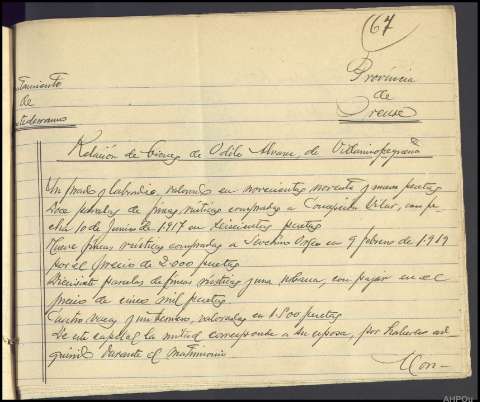 67
Provincia
de
Orense
tamiento
de
Relación de bienes de Odilo Alvarez, de
Un prado y labradio, valorado en novecientas noventa y nueve pesetas
Doce parcelas de fincas rústicas compradas a Concepción Vilar, con fe-
cha 10 de Junio de 1.917 en seiscientas pesetas
Nueve fincas rústicas compradas a Severino en 9 febrero de 1.919
por el precio de 2.000 pesetas
Diecisiete parcelas de fincas rústicas y una urbana, con pajar en el
precio de cinco mil pesetas
Cuatro vacas y un ternero, valoradas en 1.500 pesetas
De este capital la mitad corresponde a su esposa, por haberlos ad-
quirido durante el matrimonio
AHPOu